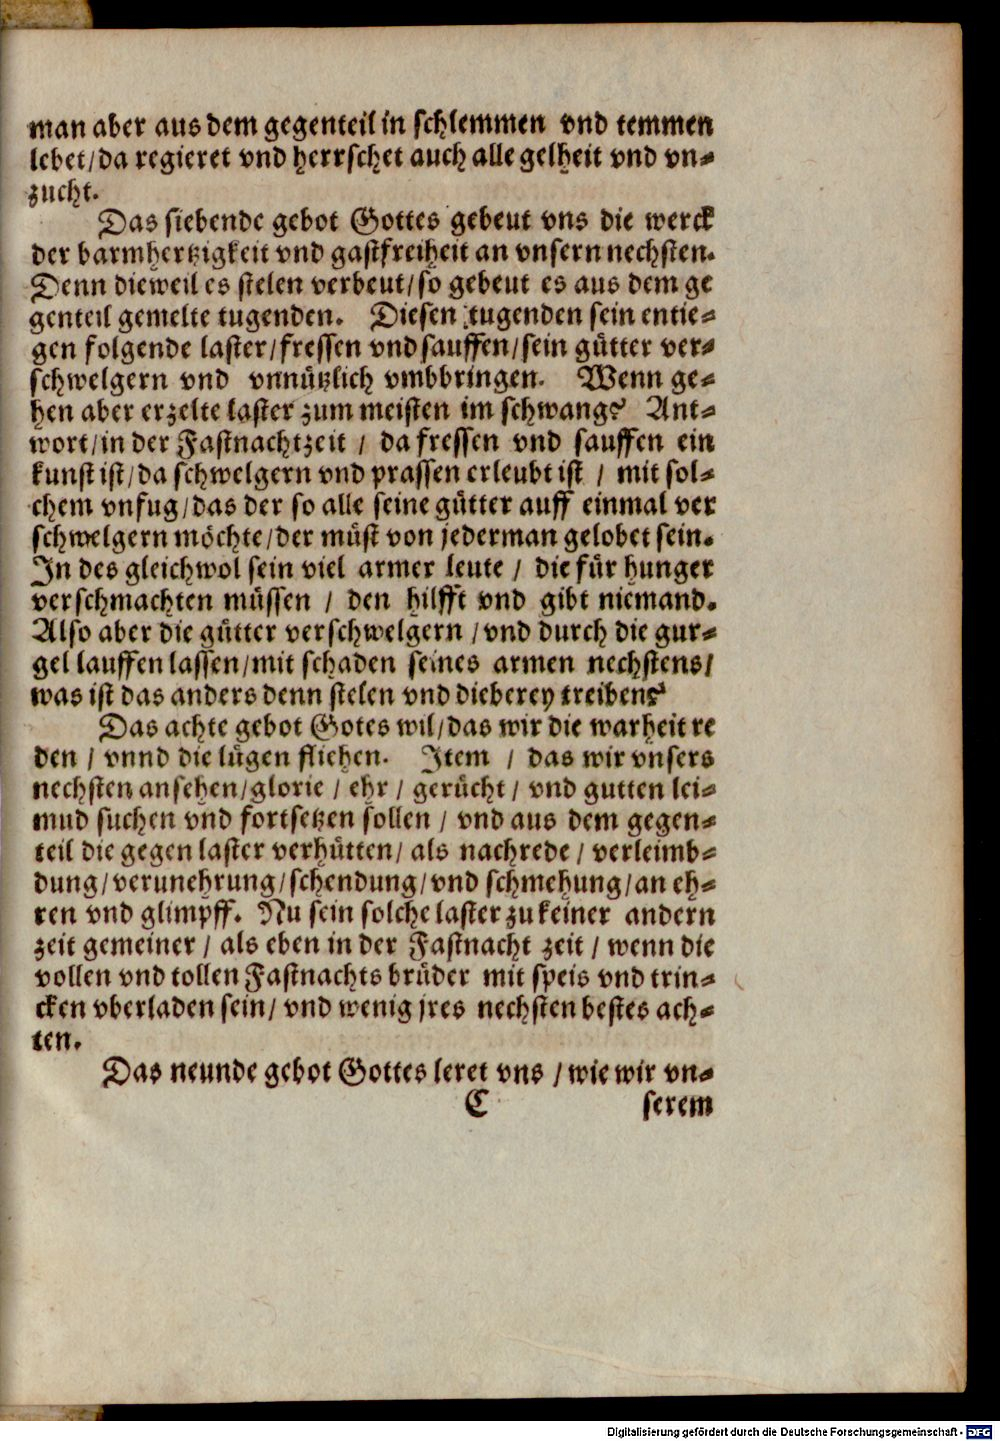 man aber aus dem gegenteil in schlemmen vnd temmen
lebet/da regieret vnd herrschet auch alle gelheit vnd vn-
zucht.
Das siebende gebot Gottes gebeut vns die werck
der barmhertzigkeit vnd gastfreiheit an vnsern nechsten.
Denn dieweil es stelen verbeut/so gebeut es aus dem ge
genteil gemelte tugenden. Diesen tugenden sein entie-
gen folgende laster/fressen vnd sauffen/sein gütter ver-
schwelgern vnd vnnützlich vmbbringen. Wenn ge-
hen aber erzelte laster zum meisten im schwang? Ant-
wort/in der Fastnachtzeit / da fressen vnd sauffen ein
kunst ist/da schwelgern vnd prassen erleubt ist / mit sol-
chem vnfug/das der so alle seine gütter auff einmal ver
schwelgern möchte/der müst von jederman gelobet sein.
In des gleichwol sein viel armer leute / die für hunger
verschmachten müssen / den hilfft vnd gibt niemand.
Also aber die gütter verschwelgern /vnd durch die gur-
gel lauffen lassen/mit schaden seines armen nechstens/
was ist das anders denn stelen vnd dieberey treiben?
Das achte gebot Gotes wil/das wir die warheit re
den / vnnd die lügen fliehen. Item / das wir vnsers
nechsten ansehen/glorie / ehr / gerücht / vnd gutten lei-
mud suchen vnd fortsetzen sollen / vnd aus dem gegen-
teil die gegen laster verhütten/ als nachrede / verleimb-
dung/verunehrung/schendung/vnd schmehung/an eh-
ren vnd glimpff. Nu sein solche laster zu keiner andern
zeit gemeiner / als eben in der Fastnacht zeit / wenn die
vollen vnd tollen Fastnachts brüder mit speis vnd trin-
cken vberladen sein/ vnd wenig jres nechsten bestes ach-
ten.
Das neunde gebot Gottes leret vns / wie wir vn-
C serem
Digitalisierung gefördert durch die Deutsche Forschungsgemeinschaft - DFG